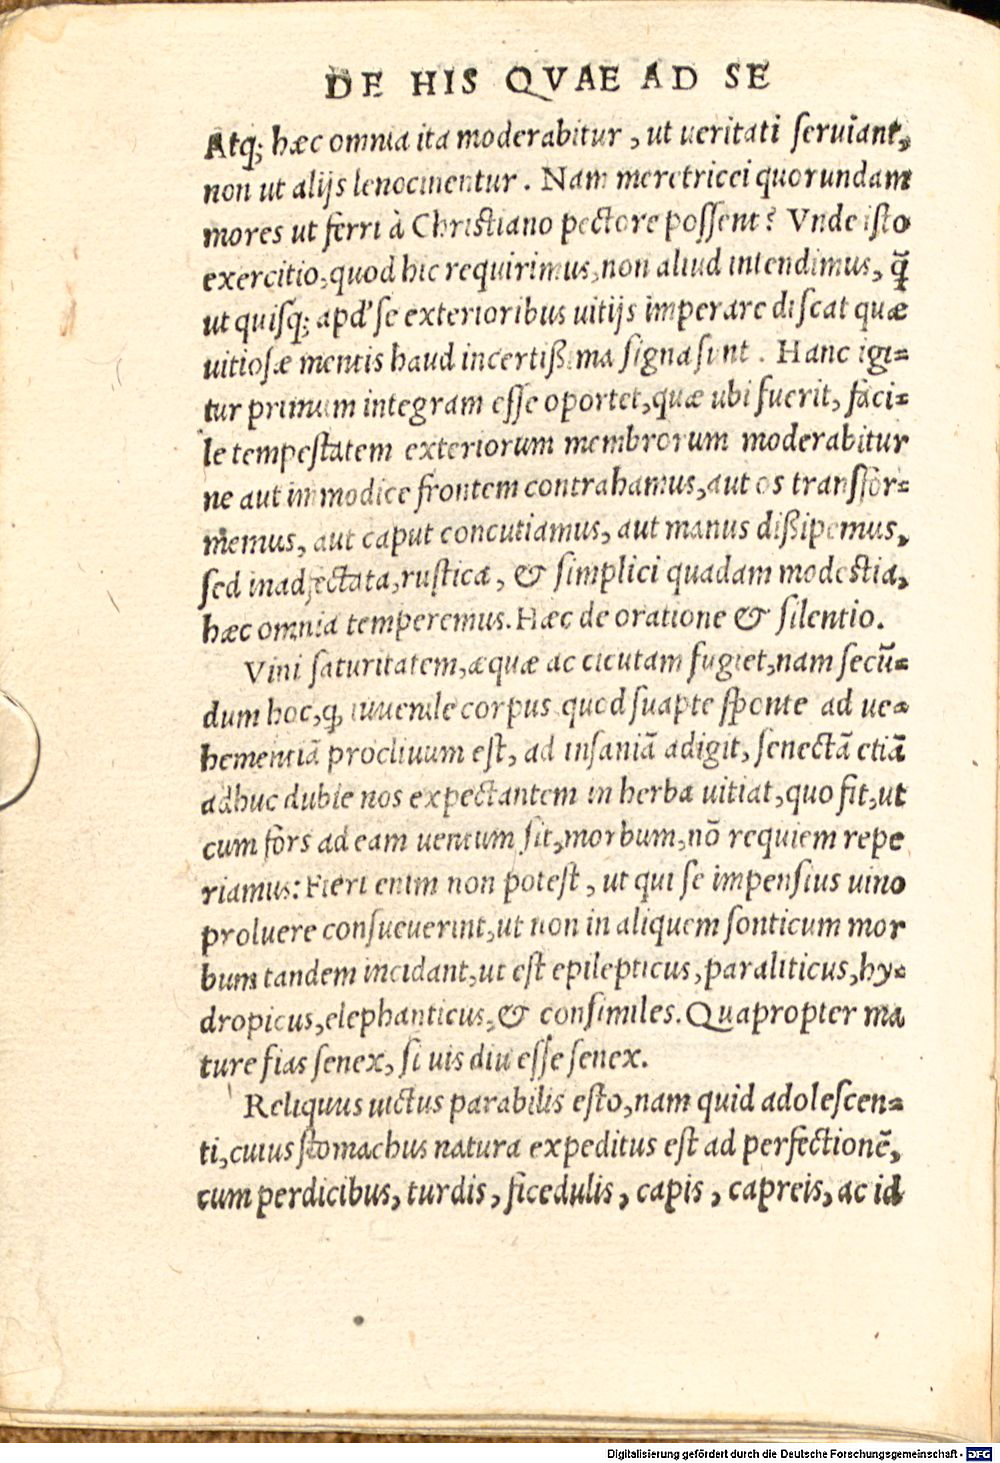 DE HIS QVAE AD SE
Atq; hæc omnia ita moderabitur, ut ueritati seruiant,
non ut alijs lenocinentur. Nam meretricei quorundam
mores ut ferri à Christiano pectore possent? Vnde isto
exercitio, quod hic requirimus, non aliud intendimus, q̃
ut quisq; apd' se exterioribus uitijs imperare discat quæ
uitiosæ mentis haud incertißima signa sunt. Hanc igi=
tur primum integram esse oportet, quæ ubi fuerit, faci=
le tempestatem exteriorum membrorum moderabitur
ne aut immodice frontem contrahamus, aut os transfor=
memus, aut caput concutiamus, aut manus dißipemus,
sed inadfectata, rustica, & simplici quadam modestia,
hæc omnia temperemus. Hæc de oratione & silentio.
Vini saturitatem, æquæ ac cicutam fugiet, nam secũ=
dum hoc, q, iuuenile corpus quod suapte sponte ad ue=
hementiã procliuum est, ad insaniã adigit, senectã etiã
adhuc dubie nos expectantem in herba uitiat, quo fit, ut
cum fors ad eam uentum sit, morbum, nõ requiem repe
riamus: Fieri enim non potest, ut qui se impensius uino
proluere consueuerint, ut non in aliquem sonticum mor
bum tandem incidant, ut est epilepticus, paraliticus, hy=
dropicus, elephanticus, & consimiles. Quapropter ma
ture fias senex, si uis diu esse senex.
Reliquus uictus parabilis esto, nam quid adolescen=
ti, cuius stomachus natura expeditus est ad perfectionẽ,
cum perdicibus, turdis, ficedulis, capis, capreis, ac id
Digitalisierung gefördert durch die Deutsche Forschungsgemeinschaft - DFG